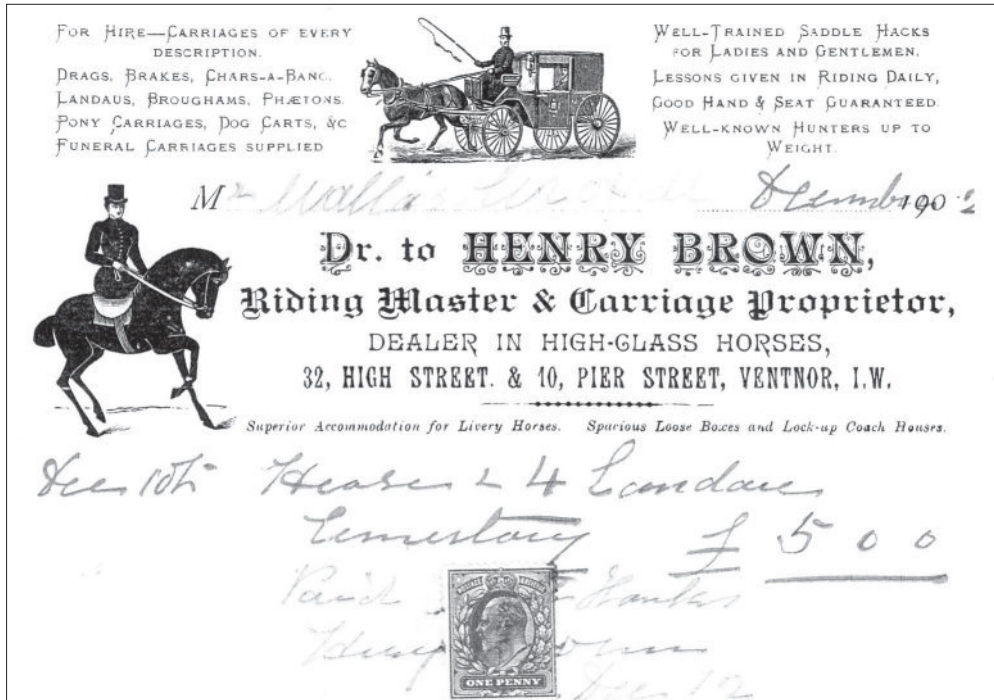 FOR HIRE—CARRIAGES OF EVERY
DESCRIPTION.
DRAGS, BRAKES, CHARS-A-BANC.
LANDAUS, BROUGHAMS, PHÆTONS.
PONY CARRIAGES, DOG CARTS, &C
FUNERAL CARRIAGES SUPPLIED
WELL-TRAINED SADDLE HACKS
FOR LADIES AND GENTLEMEN.
LESSONS GIVEN IN RIDING DAILY,
GOOD HAND & SEAT GUARANTEED.
WELL-KNOWN HUNTERS UP TO
WEIGHT.
Mr Wallis December 1902
Dr. to HENRY BROWN,
Riding Master & Carriage Proprietor,
DEALER IN HIGH-CLASS HORSES,
32, HIGH STREET. & 10, PIER STREET, VENTNOR, I.W.
Superior Accommodation for Livery Horses. Spacious Loose Boxes and Lock-up Coach Houses.
Dec 10th Hearse & 4 Landaus
Cemetery £ 5 0 0
Paid Thanks
Henry Brown
ONE PENNY
Dec 12